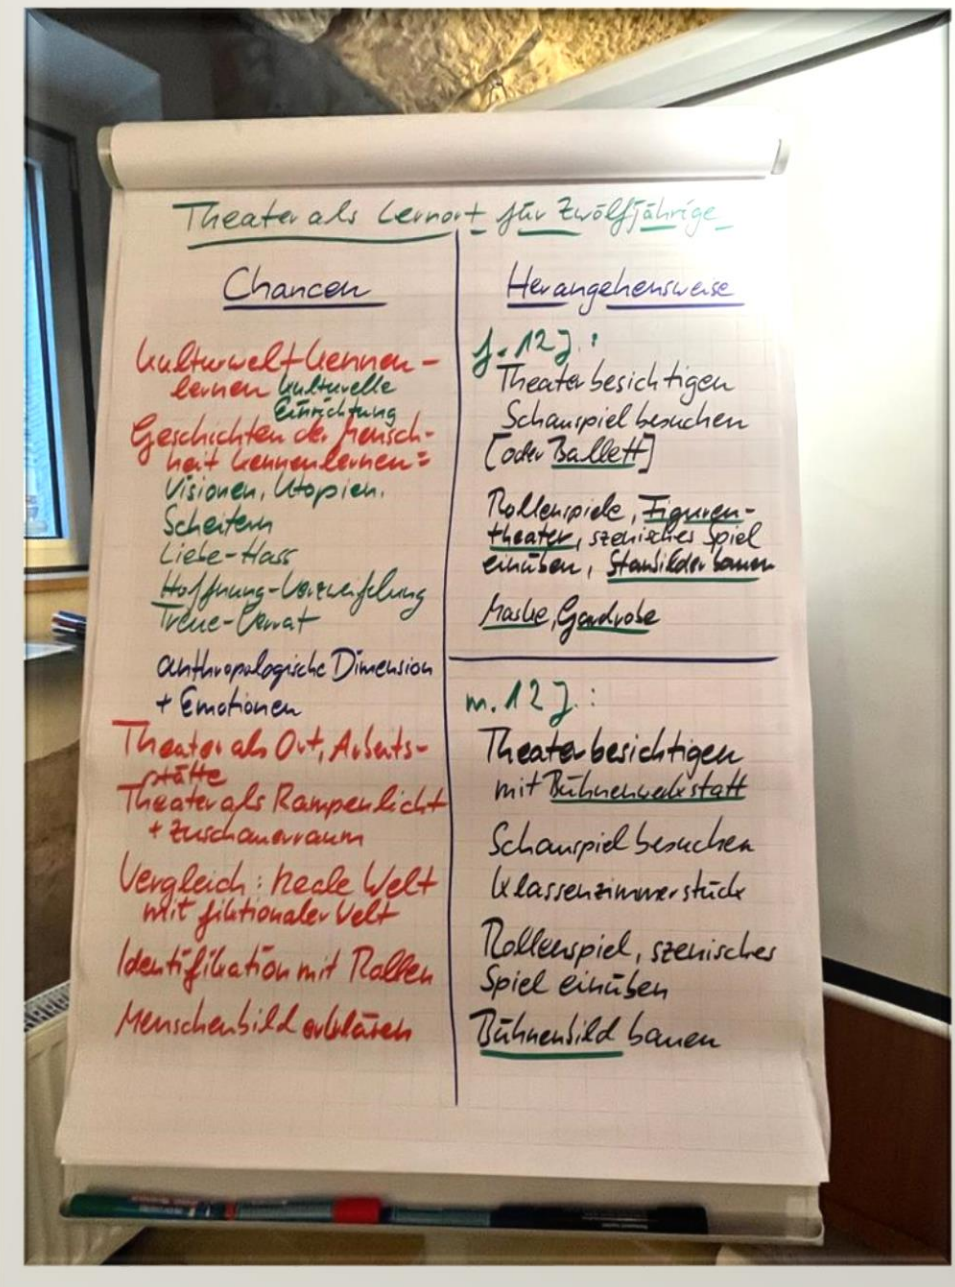 Theater als Lernort für Zwölfjährige
Chancen
Kulturwelt kennen-
lernen kulturelle
Einrichtung
Geschichten der Mensch-
heit kennenlernen =
Visionen, Utopien,
Scheitern
Liebe-Hass
Hoffnung-Verzweiflung
Treue-Verrat
anthropologische Dimension
+ Emotionen
Theater als Ort, Arbeits-
stätte
Theater als Rampenlicht
+ Zuschauerraum
Vergleich: Reale Welt
mit fiktionaler Welt
Identifikation mit Rollen
Menschenbild erklären
Herangehensweise
f. 12 J.:
Theater besichtigen
Schauspiel besuchen
[oder Ballett]
Rollenspiele, Figuren-
theater, szenisches Spiel
einüben, Standbilder bauen
Maske, Gardrobe
m. 12 J.:
Theater besichtigen
mit Bühnenwerkstatt
Schauspiel besuchen
Klassenzimmerstück
Rollenspiel, szenisches
Spiel einüben
Bühnenbild bauen